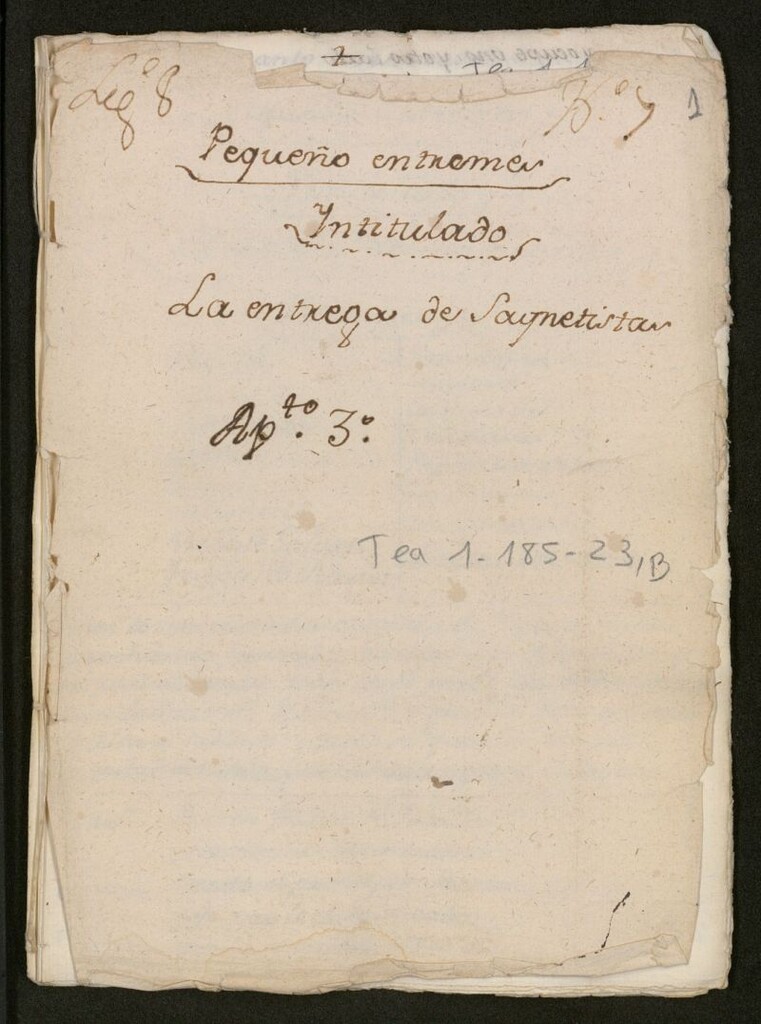 Leg.º 8 N.º 7 1
Pequeño entremes
Intitulado
La entrega de Saynetistas
Ap.to 3.º
Tea 1-185-23, B